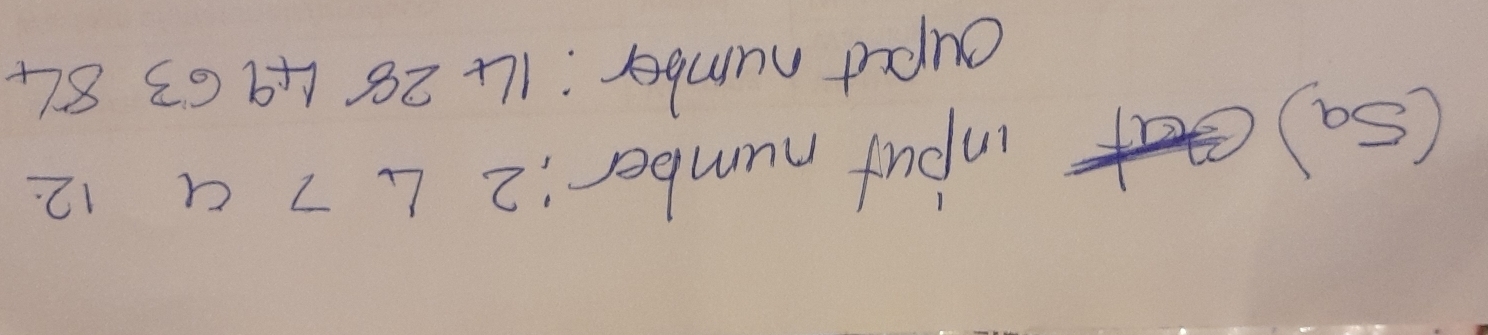 (5a) input number : 2 4 7 9 12
Ouput number : 14 28 49 63 84